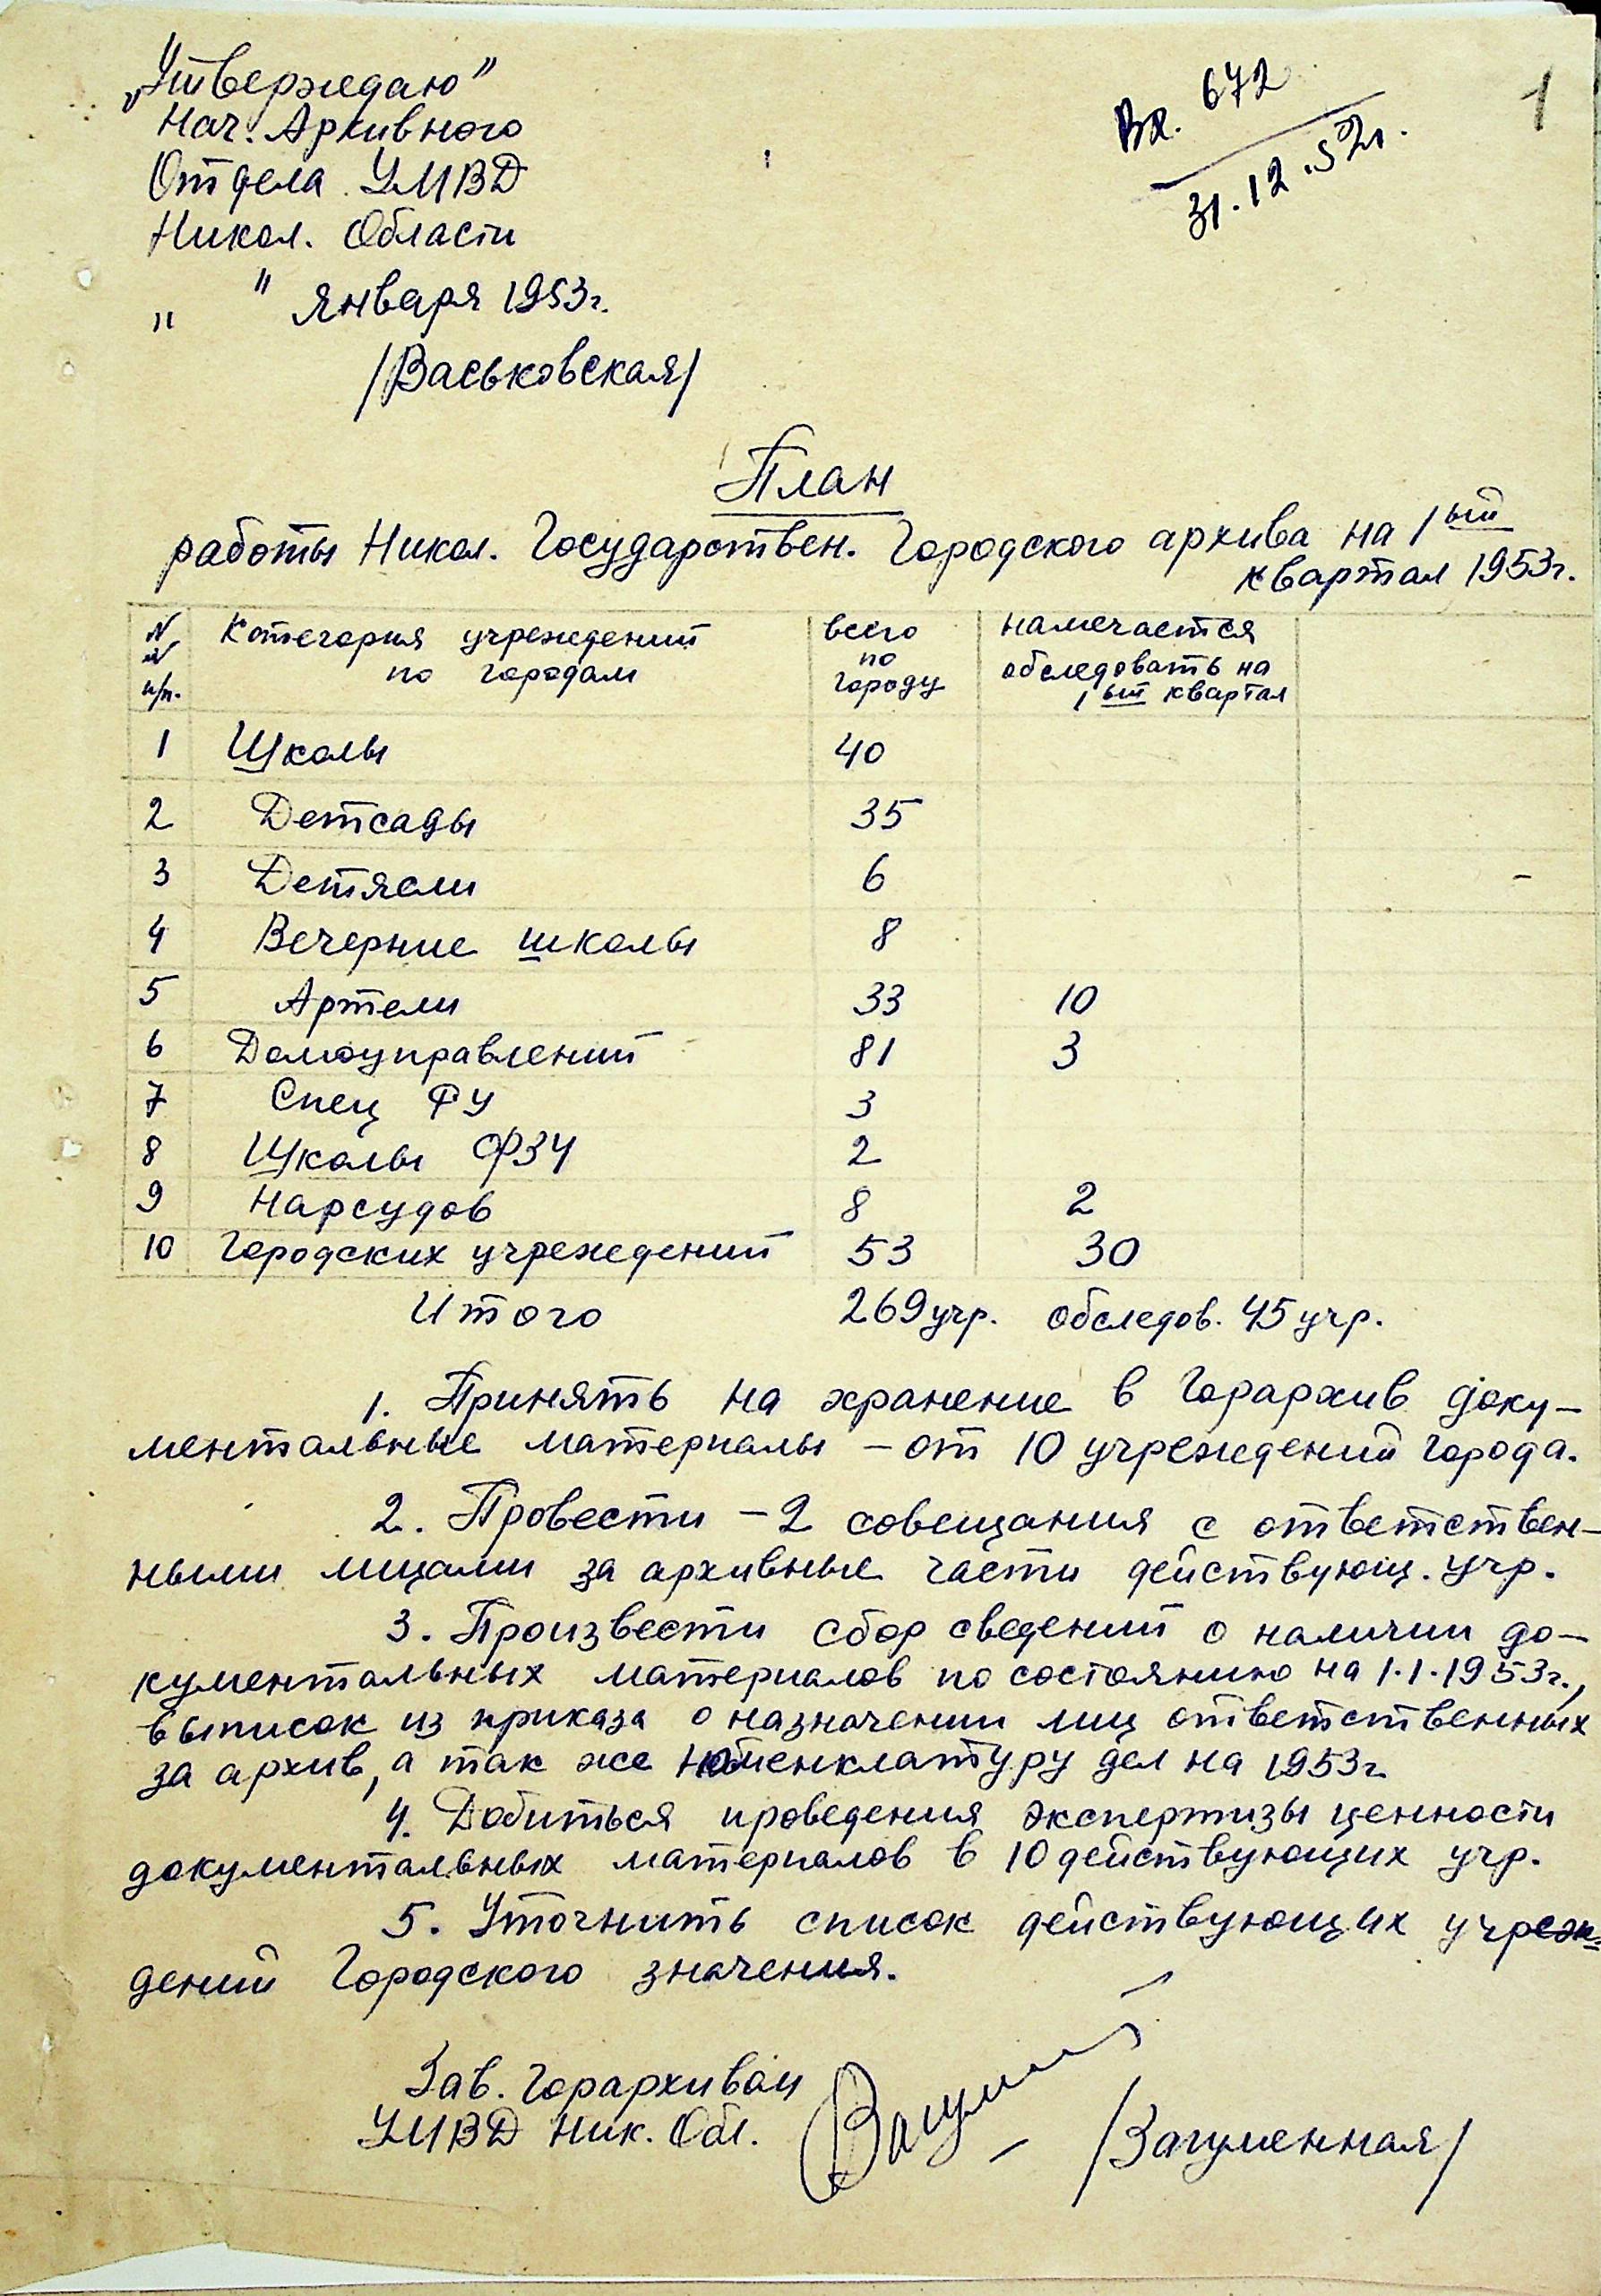 „Утверждаю"
Нач. Архивного
Отдела УМВД
Никол. Области
„ " января 1953г.
/Васьковская/
Вх. 672
31.12.52г.
1
План
работы Никол. Государствен. Городского архива на 1ый
квартал 1953г.
N N п/п. Категория учреждений по городам всего по городу намечается обследовать на 1ый квартал
1 Школы 40
2 Детсады 35
3 Детясли 6
4 Вечерние школы 8
5 Артели 33 10
6 Домоуправлений 81 3
7 Спец ФУ 3
8 Школы ФЗУ 2
9 Нарсудов 8 2
10 Городских учреждений 53 30
Итого 269 учр. обследов. 45 учр.
1. Принять на хранение в Горархив доку-
ментальные материалы – от 10 учреждений города.
2. Провести – 2 совещания с ответствен-
ными лицами за архивные части действующ. учр.
3. Произвести сбор сведений о наличии до-
кументальных материалов по состоянию на 1.1.1953г.,
выписок из приказа о назначении лиц ответственных
за архив, а так же номенклатуру дел на 1953г
4. Добиться проведения экспертизы ценности
документальных материалов в 10 действующих учр.
5. Уточнить список действующих учреж-
дений Городского значения.
Зав. Горархивом
УМВД Ник. Обл.
/Загуменная/